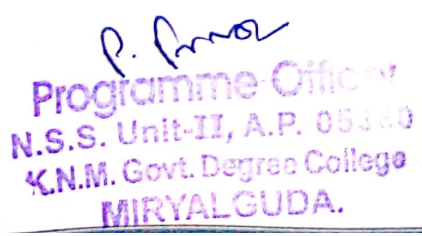 Programme Officer
N.S.S. Unit-II, A.P.
K.N.M. Govt. Degree College
MIRYALGUDA.